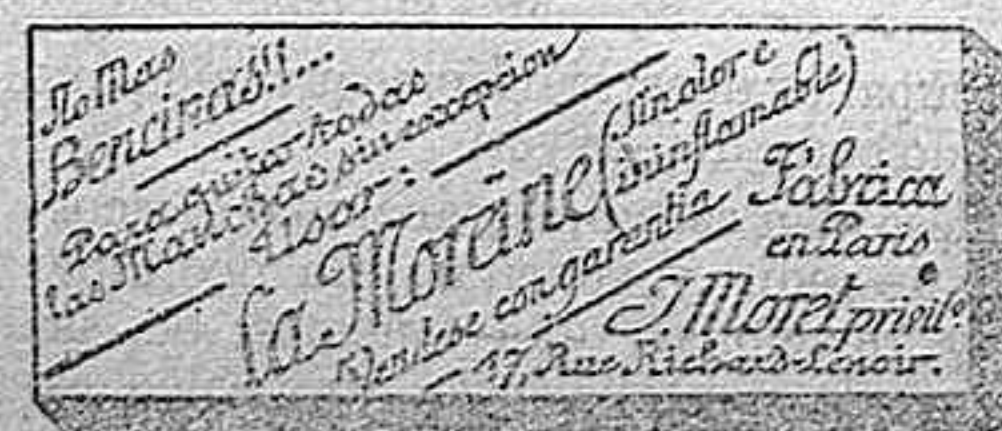 No Mas
Bencinas!!...
Para quitar todas
las Manchas sin excepcion
Usar:
La Moreïne (sin olor e
ininflamable)
Vendese con garentia
Fabrica
en Paris
J. Moret privilo.
17, Rue Richard-Lenoir.